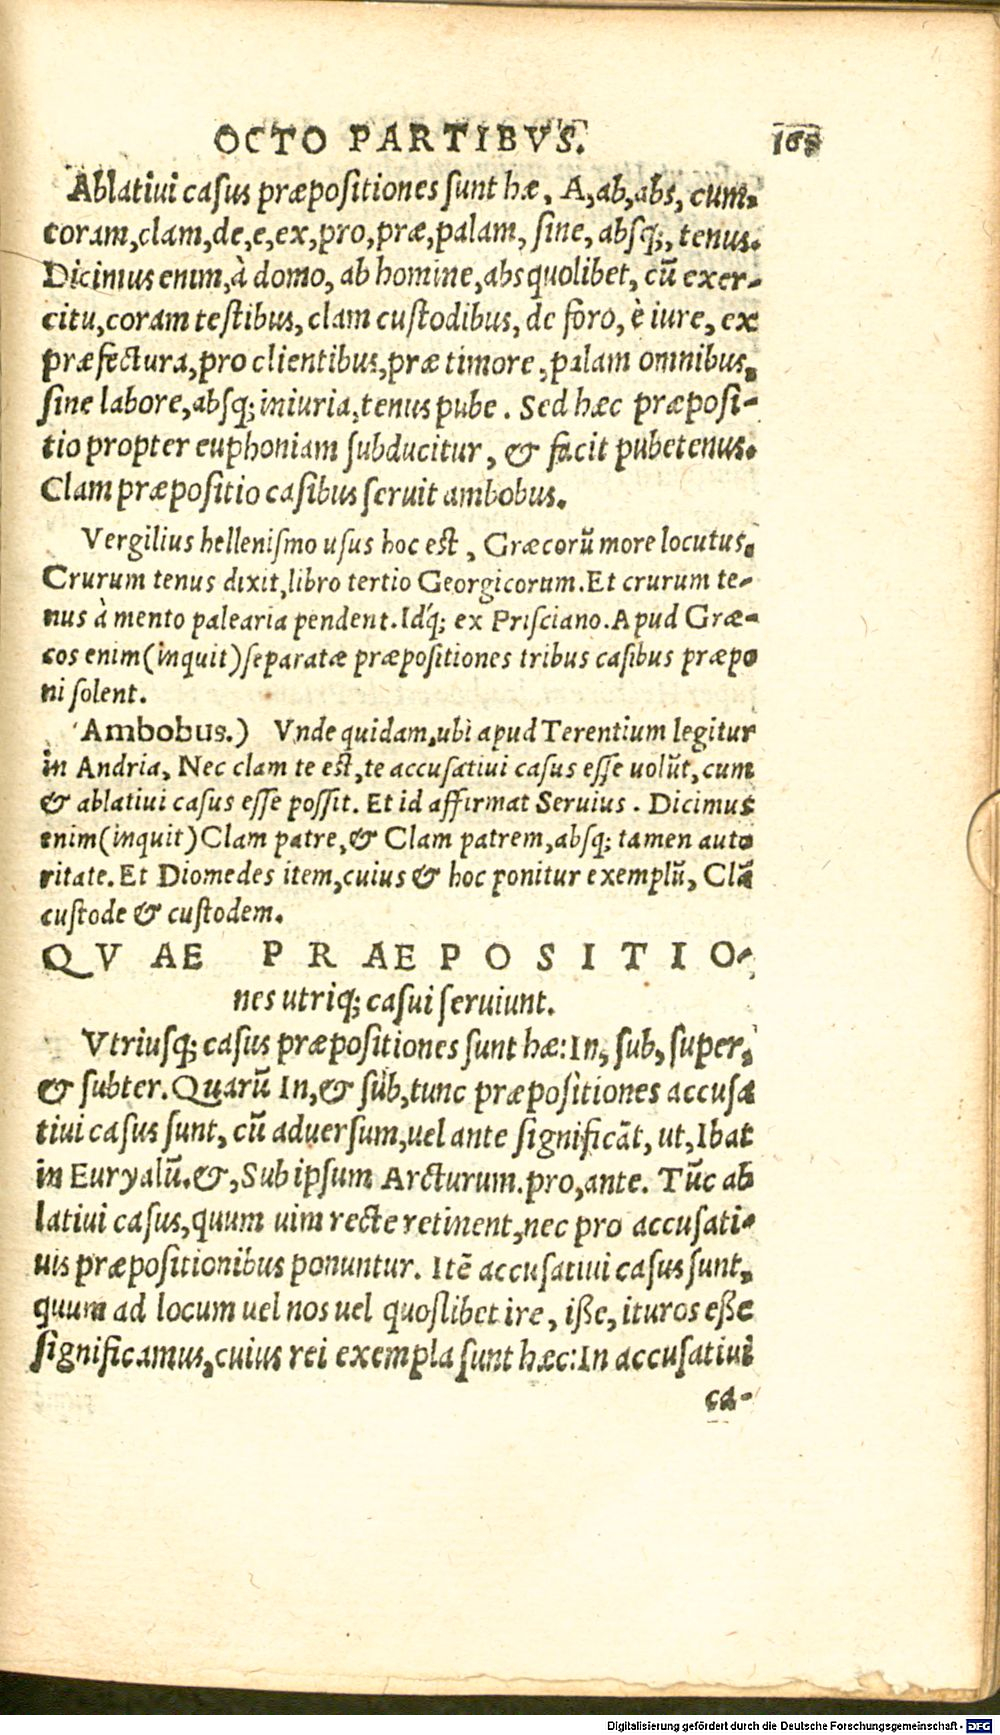 OCTO PARTIBVS.
Ablativi casus præpositiones sunt hæ, A, ab, abs, cum,
coram, clam, de, e, ex, pro, præ, palam, sine, absq;, tenus.
Dicimus enim, à domo, ab homine, abs quolibet, cũ exer-
citu, coram testibus, clam custodibus, de foro, è iure, ex
præfectura, pro clientibus, præ timore, palam omnibus,
sine labore, absq; iniuria, tenus pube. Sed hæc præposi-
tio propter euphoniam subducitur, & facit pubetenus.
Clam præpositio casibus seruit ambobus.
Vergilius hellenismo usus hoc est, Græcorũ more locutus,
Crurum tenus dixit, libro tertio Georgicorum. Et crurum te-
nus à mento palearia pendent. Idq́; ex Prisciano. Apud Græ-
cos enim (inquit) separatæ præpositiones tribus casibus præpo
ni solent.
Ambobus.) Vnde quidam, ubi apud Terentium legitur
in Andria, Nec clam te est, te accusativi casus esse uolũt, cum
& ablatiui casus esse possit. Et id affirmat Seruius. Dicimus
enim (inquit) Clam patre, & Clam patrem, absq; tamen auto
ritate. Et Diomedes item, cuius & hoc ponitur exemplũ, Clã
custode & custodem.
QVAE PRAEPOSITIO-
nes utriq; casui seruiunt.
Vtriusq; casus præpositiones sunt hæ: In, sub, super,
& subter. Quarũ In, & sub, tunc præpositiones accusa
tiui casus sunt, cũ aduersum, uel ante significãt, ut, Ibat
in Euryalũ. &, Sub ipsum Arcturum. pro, ante. Tũc ab
latiui casus, quum uim recte retinent, nec pro accusati-
uis præpositionibus ponuntur. Itẽ accusatiui casus sunt,
quum ad locum uel nos uel quoslibet ire, iße, ituros eße
significamus, cuius rei exempla sunt hæc: In accusatiui
ca-
Digitalisierung gefördert durch die Deutsche Forschungsgemeinschaft - DFG